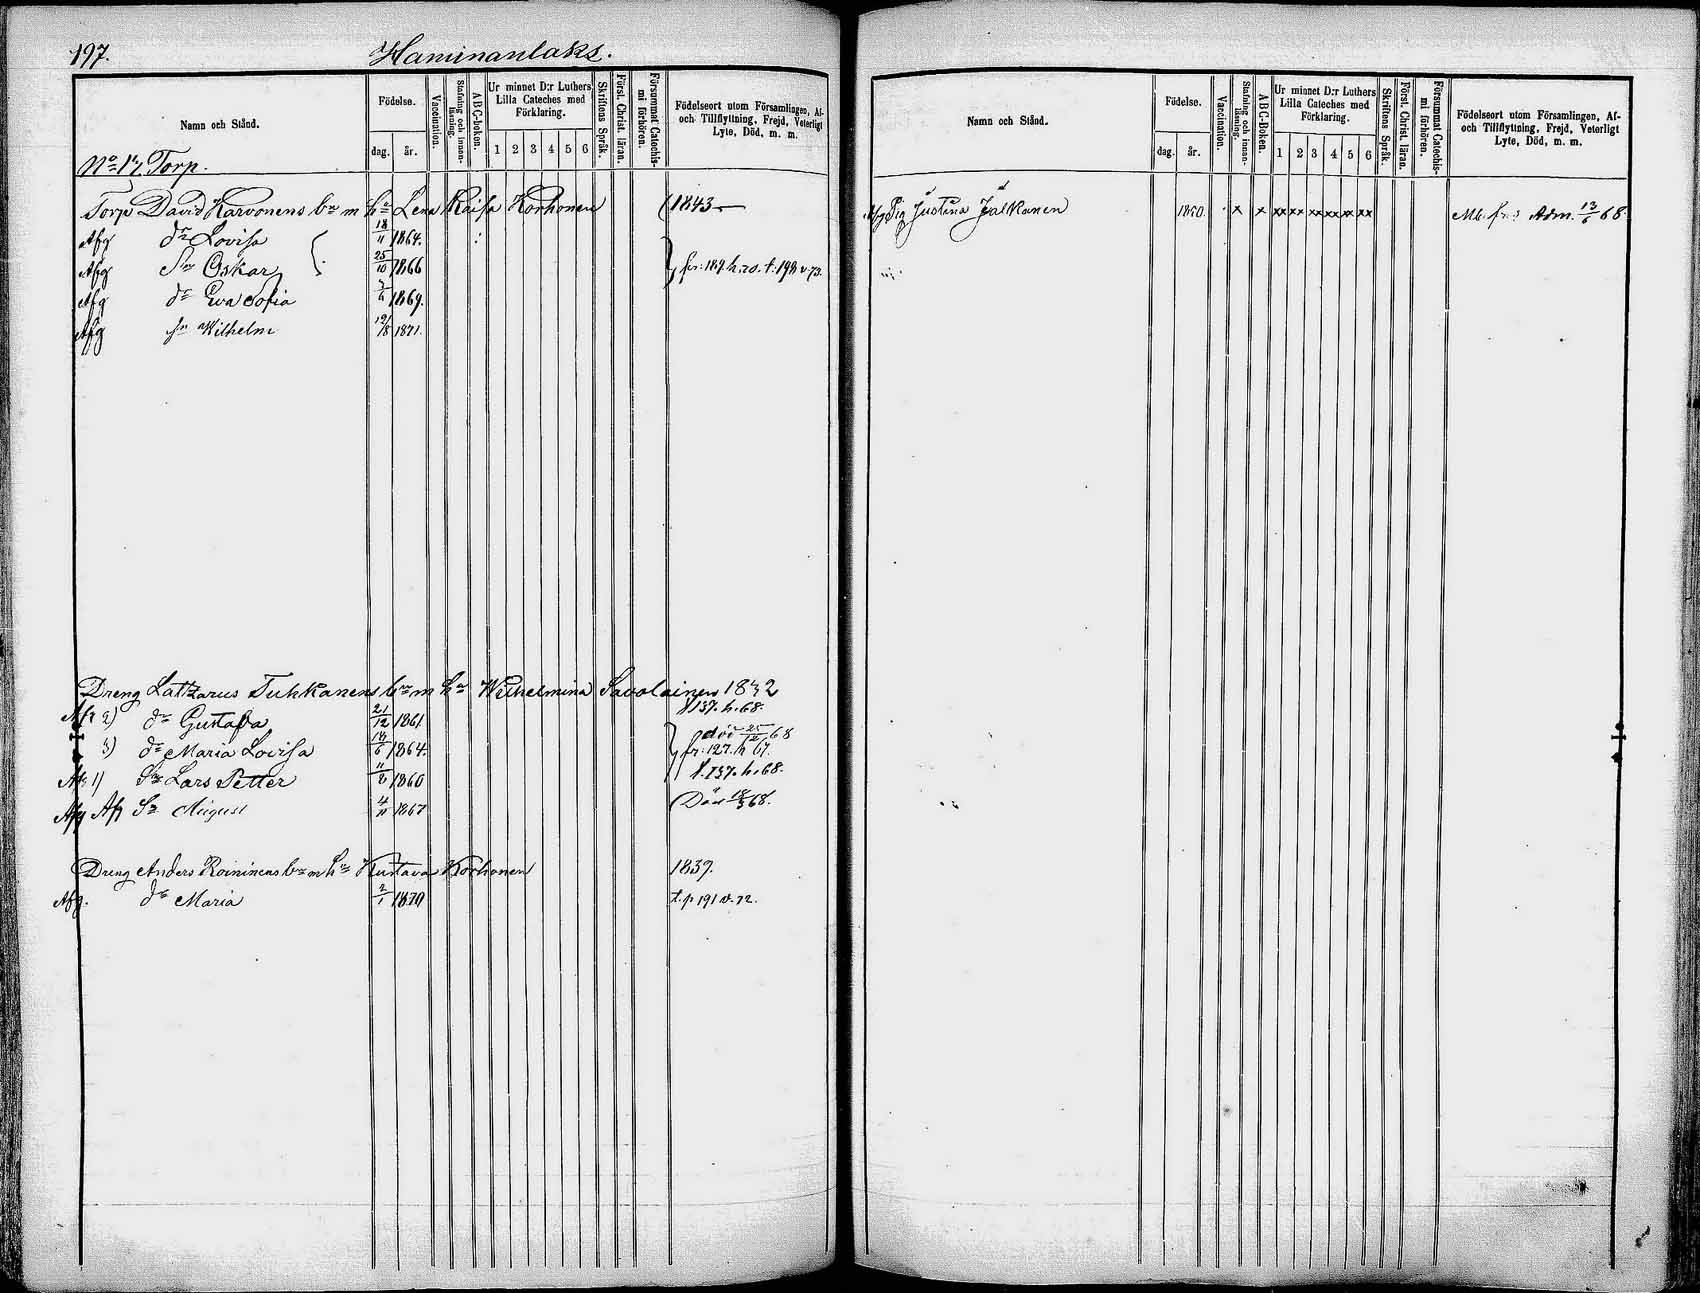 197. Haminanlaks.
Namn och Stånd.
Födelse.
dag. år.
Vaccination.
Stafning och innanläsning.
ABC-boken.
Ur minnet D:r Luthers Lilla Cateches med Förklaring.
1 2 3 4 5 6
Skriftens Språk.
Förstl. Christ. läran.
Försummat Catechismi förhören.
Födelseort utom Församlingen, Af- och Tillflyttning, Frejd, Veterligt Lyte, Död, m. m.
No 17 Torp.
Torp David Karvonens bn m hu Lena Kaisa Korhonen 1843
Afg dr Lovisa 18/11 1864.
Afg Sn Oskar 25/10 1866 fr: 189. h. 70. t. 198 v. 73.
Afg dr Eva Sofia 1869.
Afg sn Wilhelm 19/8 1871.
Dreng Lattzarus Tuhkanens bn m hu Wilhelmina Savolainen 1832
2) dr Gustafva 21/12 1861 137. h. 68.
3) dr Maria Lovisa /6 1864. död 25/ 68
fr: 127. h 67.
1) Sn Lars Petter 11/2 1860 137. h. 68.
Afg Sn August 4/11 1867 Död 18/3 68.
Dreng Anders Roininens bn m hu Kustava Korhonen 1839.
Afg. dr Maria 2/1 1870 t. p 191 v. 72.
Namn och Stånd.
Födelse.
dag. år.
Vaccination.
Stafning och innanläsning.
ABC-boken.
Ur minnet D:r Luthers Lilla Cateches med Förklaring.
1 2 3 4 5 6
Skriftens Språk.
Förstl. Christ. läran.
Försummat Catechismi förhören.
Födelseort utom Församlingen, Af- och Tillflyttning, Frejd, Veterligt Lyte, Död, m. m.
Afg Pig Justina Jalkanen 1850. x x xx xx xx xx xx xx Adm. 13/6 68.